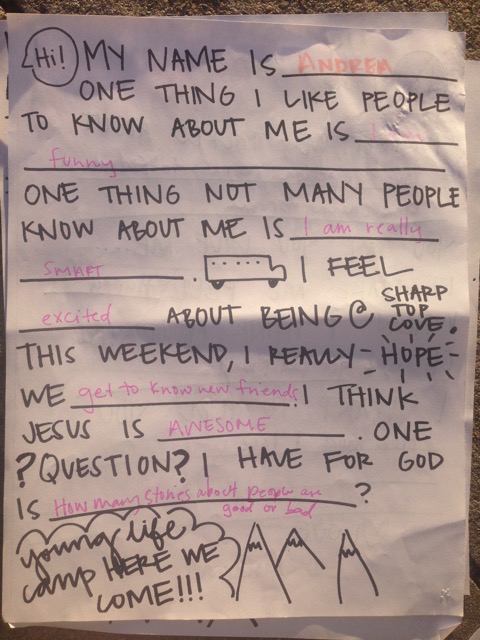 Hi! MY NAME IS ANDREA
ONE THING I LIKE PEOPLE
TO KNOW ABOUT ME IS I am
funny
ONE THING NOT MANY PEOPLE
KNOW ABOUT ME IS I am really
SMART. I FEEL
excited ABOUT BEING @ SHARP TOP COVE.
THIS WEEKEND, I REALLY HOPE
WE get to know new friends! I THINK
JESUS IS AWESOME. ONE
?QUESTION? I HAVE FOR GOD
IS How many stories about people are good or bad?
young life
camp HERE WE
COME!!!